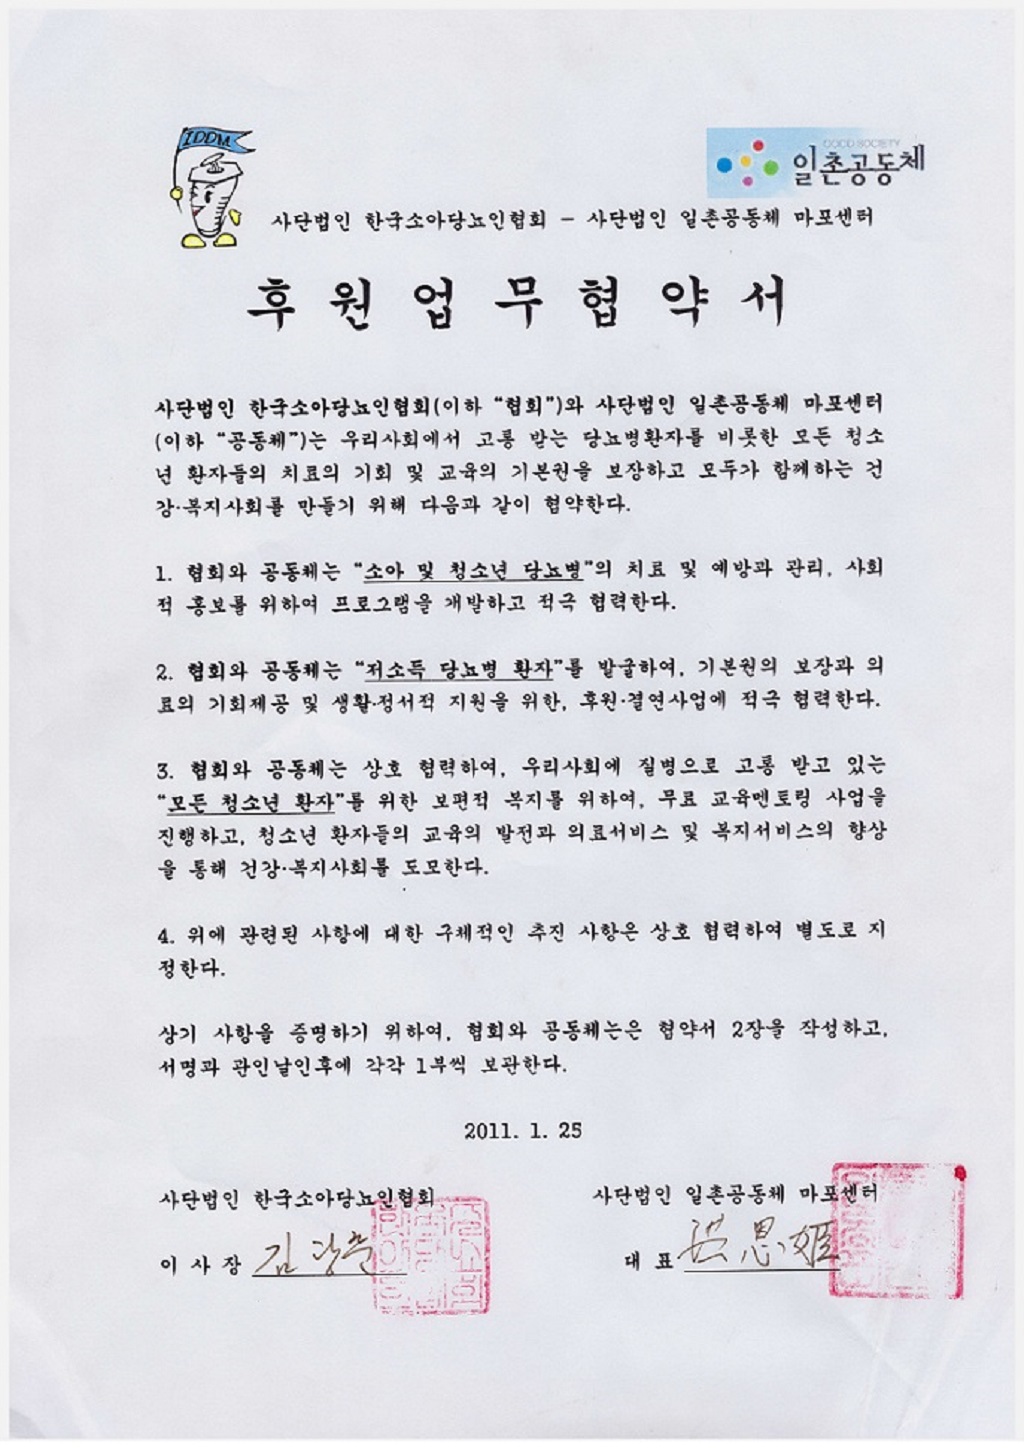 IDDM
GOOD SOCIETY
일촌공동체
사단법인 한국소아당뇨인협회 - 사단법인 일촌공동체 마포센터
후원업무협약서
사단법인 한국소아당뇨인협회(이하 "협회")와 사단법인 일촌공동체 마포센터
(이하 "공동체")는 우리사회에서 고통 받는 당뇨병환자를 비롯한 모든 청소
년 환자들의 치료의 기회 및 교육의 기본권을 보장하고 모두가 함께하는 건
강·복지사회를 만들기 위해 다음과 같이 협약한다.
1. 협회와 공동체는 "소아 및 청소년 당뇨병"의 치료 및 예방과 관리, 사회
적 홍보를 위하여 프로그램을 개발하고 적극 협력한다.
2. 협회와 공동체는 "저소득 당뇨병 환자"를 발굴하여, 기본원의 보장과 의
료의 기회제공 및 생활·정서적 지원을 위한, 후원·결연사업에 적극 협력한다.
3. 협회와 공동체는 상호 협력하여, 우리사회에 질병으로 고통 받고 있는
"모든 청소년 환자"를 위한 보편적 복지를 위하여, 무료 교육멘토링 사업을
진행하고, 청소년 환자들의 교육의 발전과 의료서비스 및 복지서비스의 향상
을 통해 건강·복지사회를 도모한다.
4. 위에 관련된 사항에 대한 구체적인 추진 사항은 상호 협력하여 별도로 지
정한다.
상기 사항을 증명하기 위하여, 협회와 공동체는은 협약서 2장을 작성하고,
서명과 관인날인후에 각각 1부씩 보관한다.
2011. 1. 25
사단법인 한국소아당뇨인협회
사단법인 일촌공동체 마포센터
이 사 장 김
대 표 洪恩姬